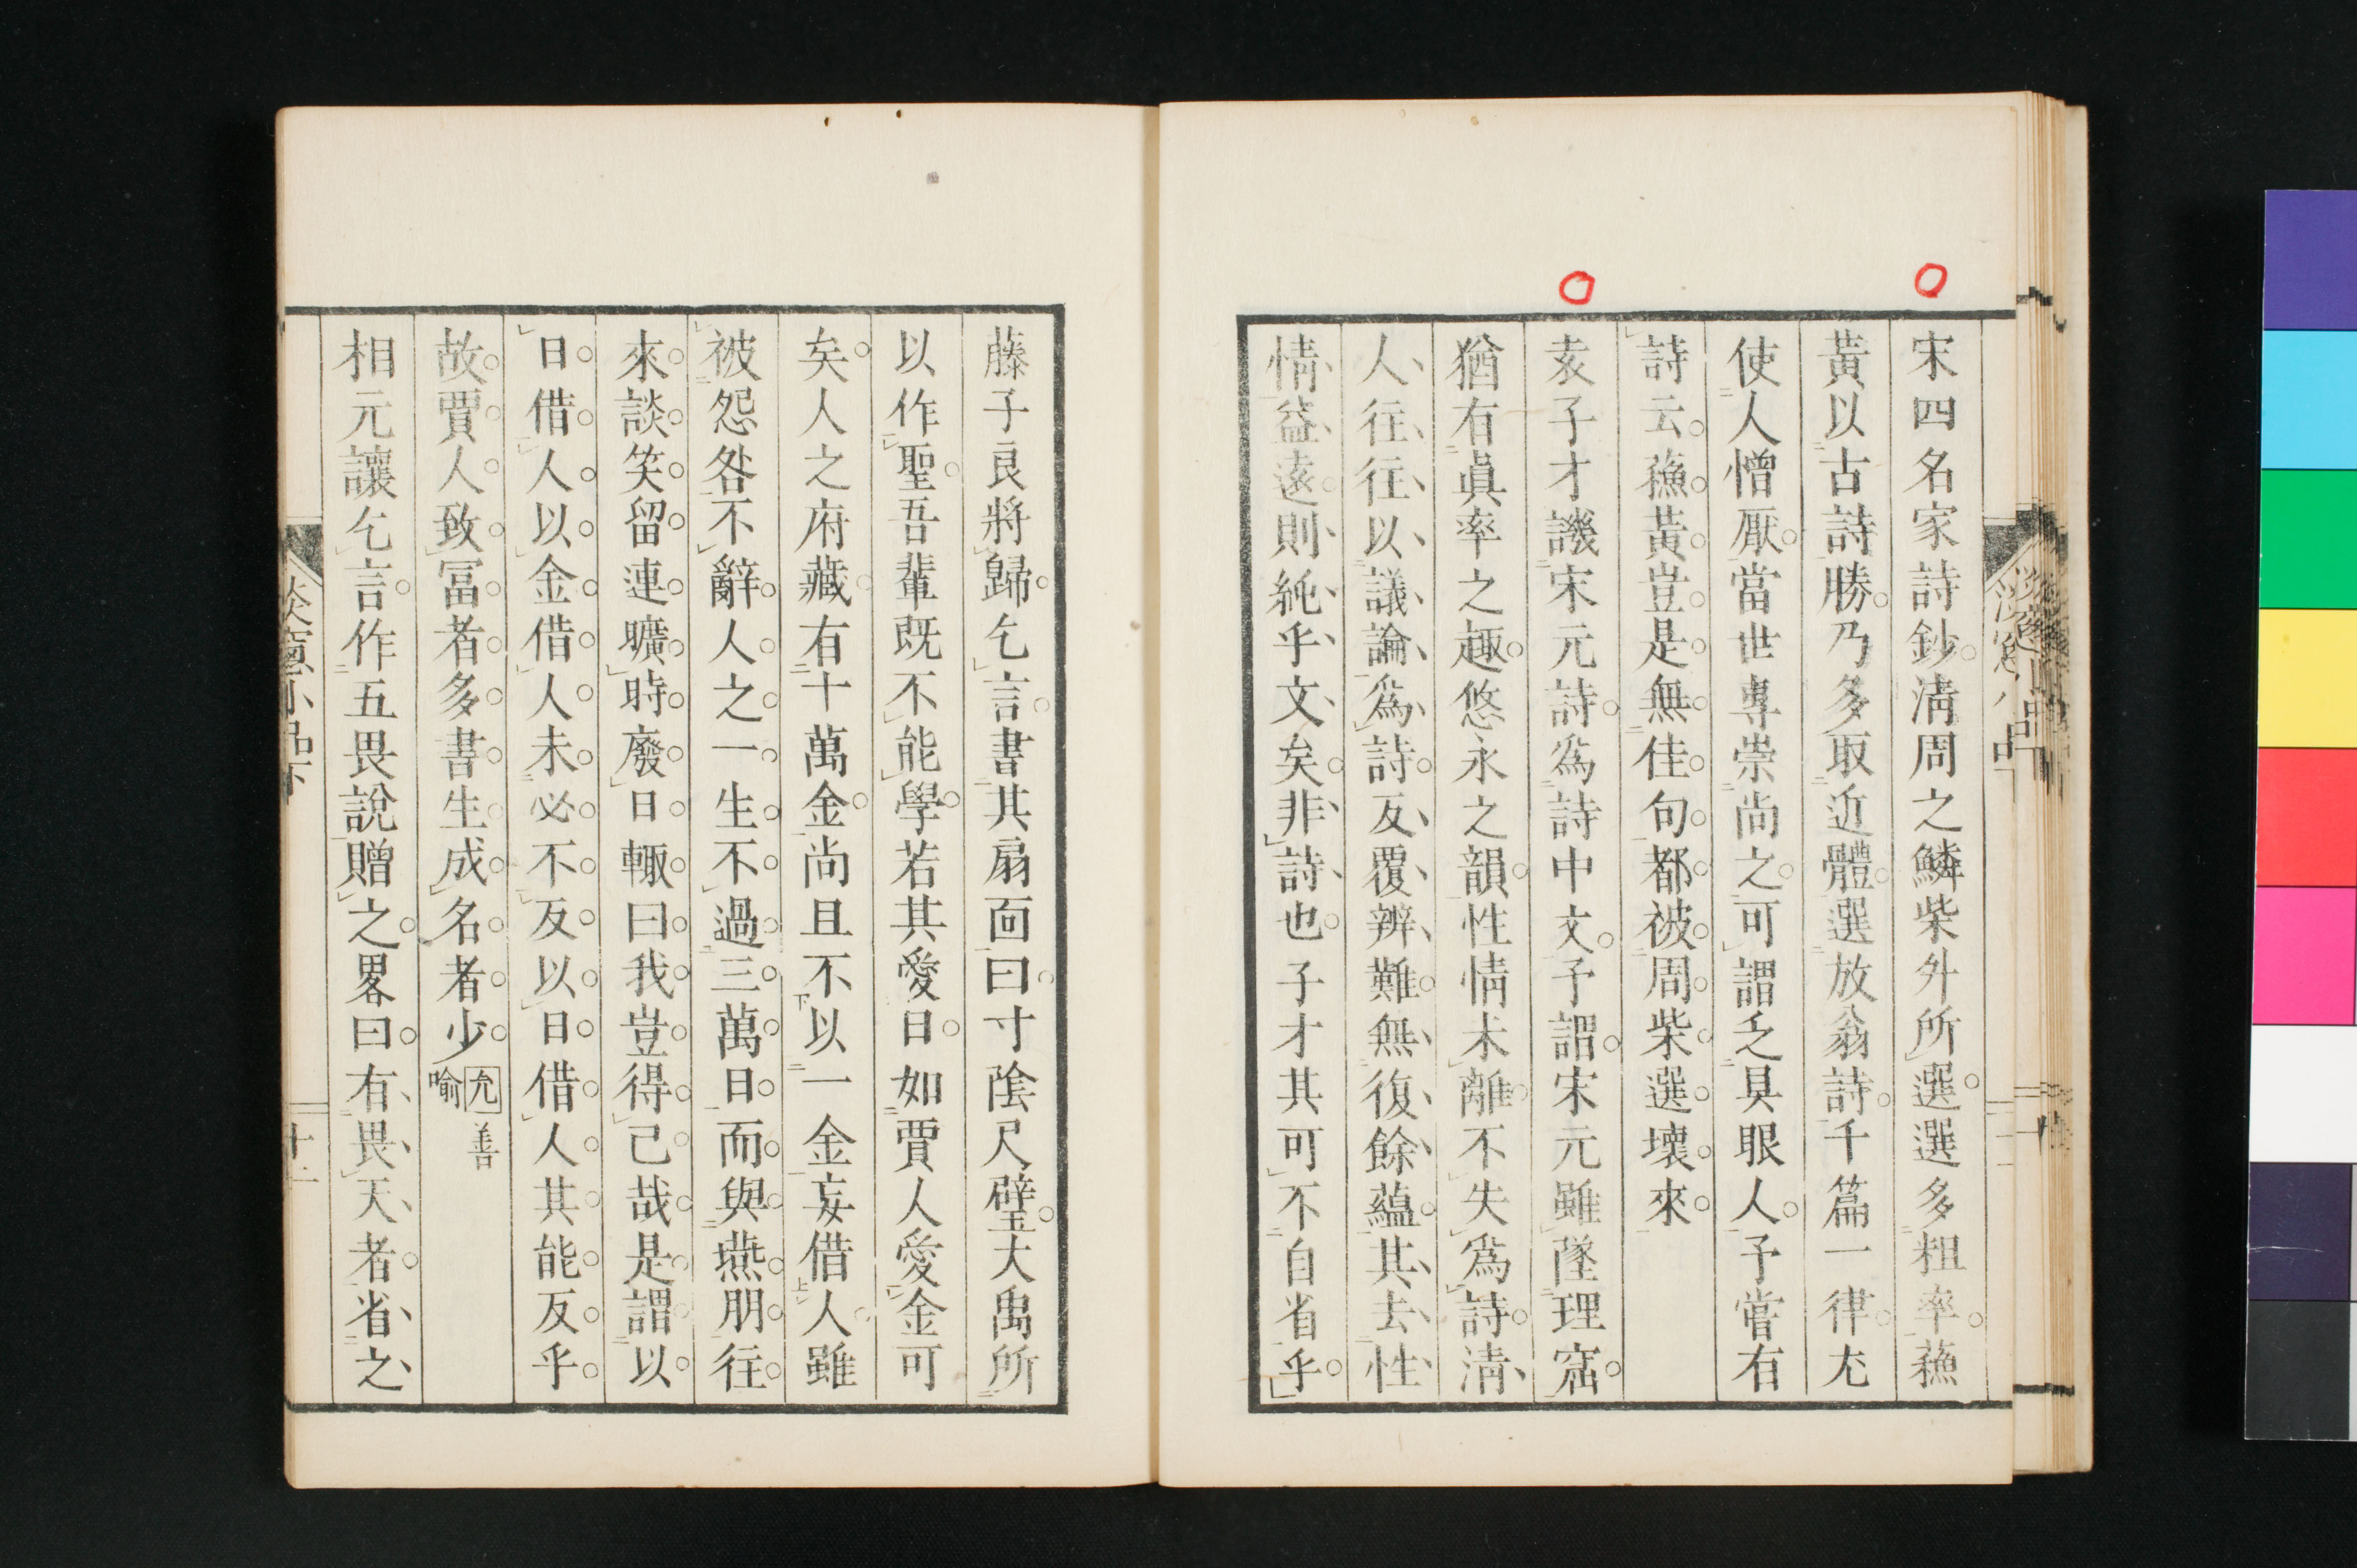 宋四名家詩鈔淸周之鱗柴外所選選多粗率蘓
黃以古詩勝乃多取近體選放翁詩千篇一律尤
使人憎厭當世專崇尚之可謂乏具眼人予嘗有
詩云蘓黃豈是無佳句都被周柴選壞來
袁子才譏宋元詩爲詩中文予謂宋元雖墜理窟
猶有眞率之趣悠永之韻性情未離不失爲詩淸
人往往以議論爲詩反覆辨難無復餘蘊其去性
情益遠則純乎文矣非詩也子才其可不自省乎
藤子良將歸乞言書其扇面曰寸陰尺璧大禹所
以作聖吾輩既不能學若其愛日如賈人愛金可
矣人之府藏有十萬金尚且不以一金妄借人雖
被怨咎不辭人之一生不過三萬日而與燕朋往
來談笑留連曠時廢日輙曰我豈得已哉是謂以
日借人以金借人未必不反以日借人其能反乎
故賈人致冨者多書生成名者少 允 善
喻
相元讓乞言作五畏說贈之畧曰有畏天者省之
淡窻小品下
十二